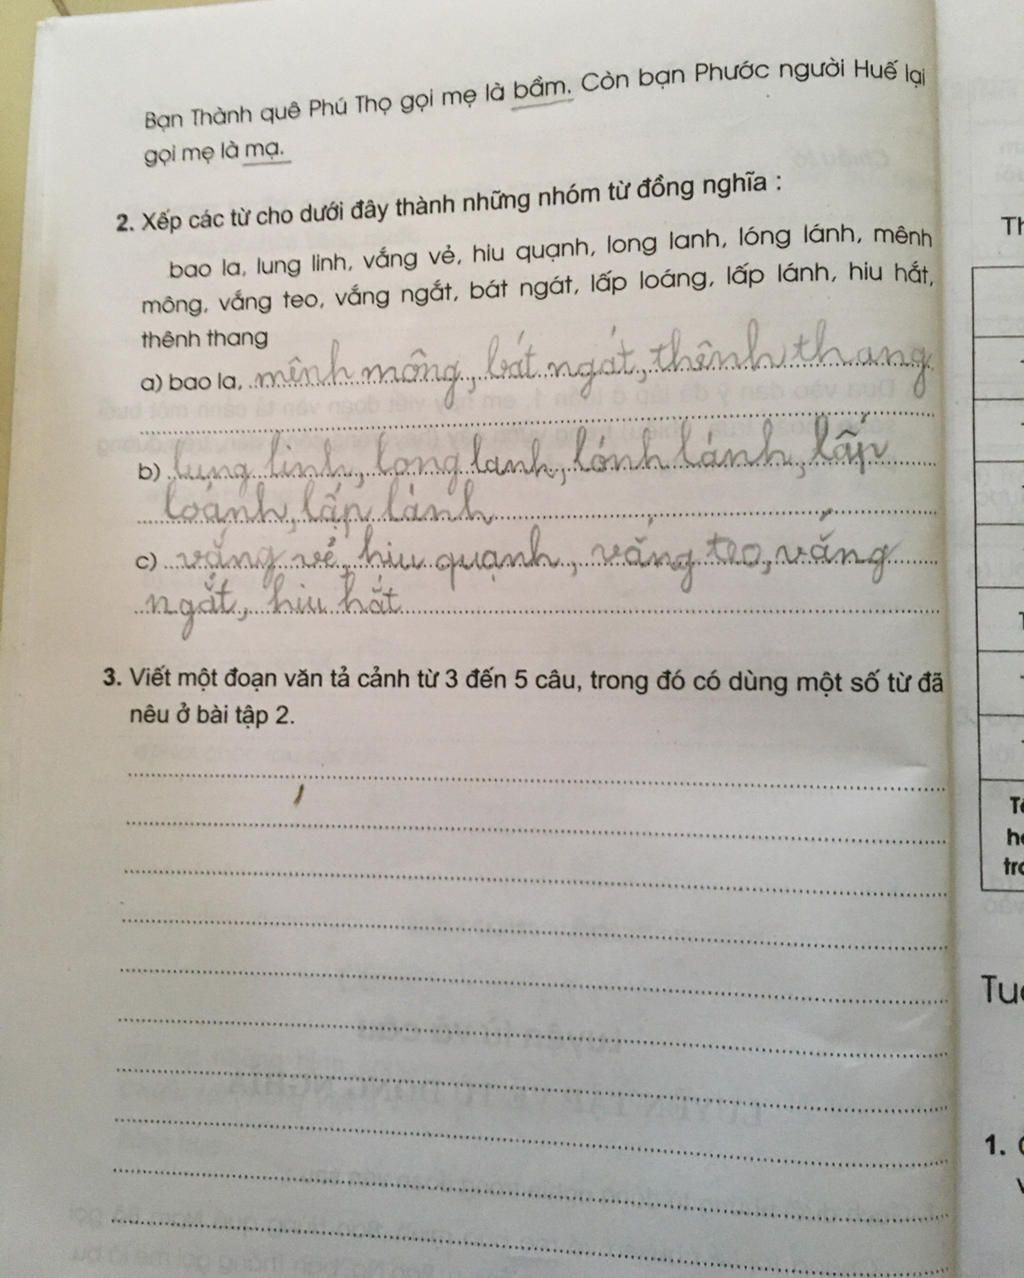 Bạn Thành quê Phú Thọ gọi mẹ là bầm. Còn bạn Phước người Huế lại
gọi mẹ là mạ.
2. Xếp các từ cho dưới đây thành những nhóm từ đồng nghĩa :
bao la, lung linh, vắng vẻ, hiu quạnh, long lanh, lóng lánh, mênh
mông, vắng teo, vắng ngắt, bát ngát, lấp loáng, lấp lánh, hiu hắt,
thênh thang
a) bao la, mênh mông, bát ngát, thênh thang
b) lung linh, long lanh, lónh lánh, lấp
loánh, lấp lánh
c) vắng vẻ, hiu quạnh, vắng teo, vắng
ngắt, hiu hắt
3. Viết một đoạn văn tả cảnh từ 3 đến 5 câu, trong đó có dùng một số từ đã
nêu ở bài tập 2.
1.